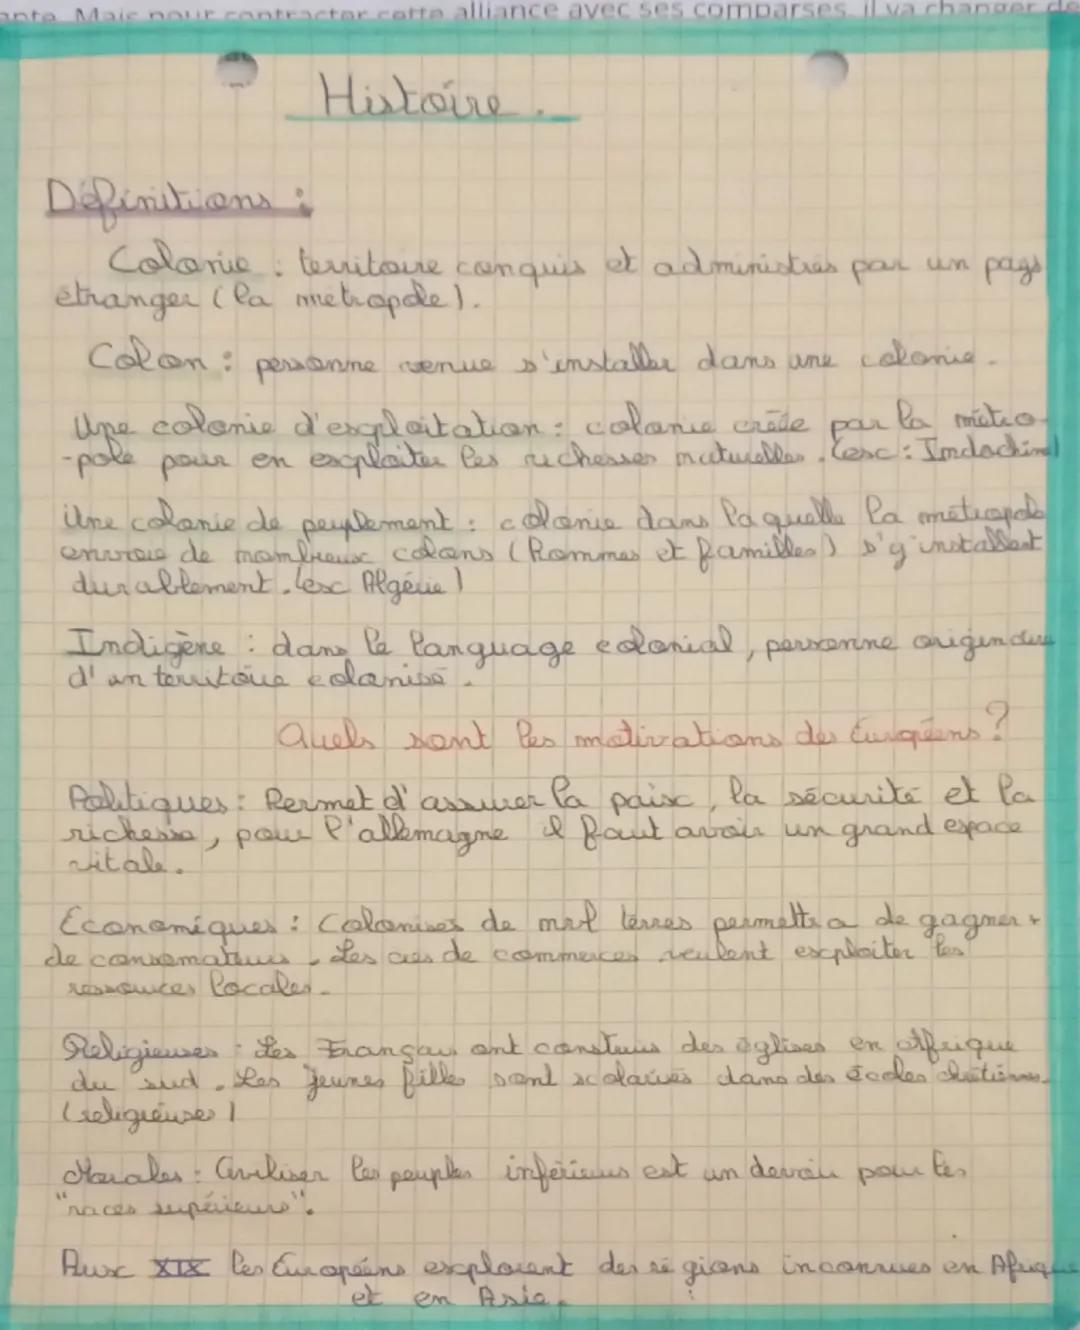 ante. Mais pour contracter cette alliance avec ses comparses, il va changer de
Histoire.
Définitions :
Colonie : territoire conquis et administrés par un pays
étranger (la métropole).
Colon : personne venue s'installer dans une colonie.
Une colonie d'exploitation : colonie créée par la métro-
-pole pour en exploiter les richesses naturelles. (ex : Indochine)
Une colonie de peuplement : colonie dans laquelle la métropole
envoie de nombreux colons (hommes et familles) s'y installent
durablement. (ex Algérie)
Indigène : dans le language colonial, personne originaire
d'un territoire colonisé.
Quels sont les motivations des Européens ?
Politiques : Permet d'assurer la paix, la sécurité et la
richesse, pour l'allemagne il faut avoir un grand espace
vitale.
Economiques : Colonises de terres permettra de gagner +
de consomateurs. Les de commerces veulent exploiter les
ressources locales.
Religieuses : Les Français ont construis des églises en Affrique
du sud. Les jeunes filles sont scolarisés dans des écoles chrétiennes
(religieuses)
Morales : Civiliser les peuples inférieurs est un devoir pour les
"races supérieurs".
Aux XIX les Européens explorent des régions inconnues en Afrique
et en Asie.